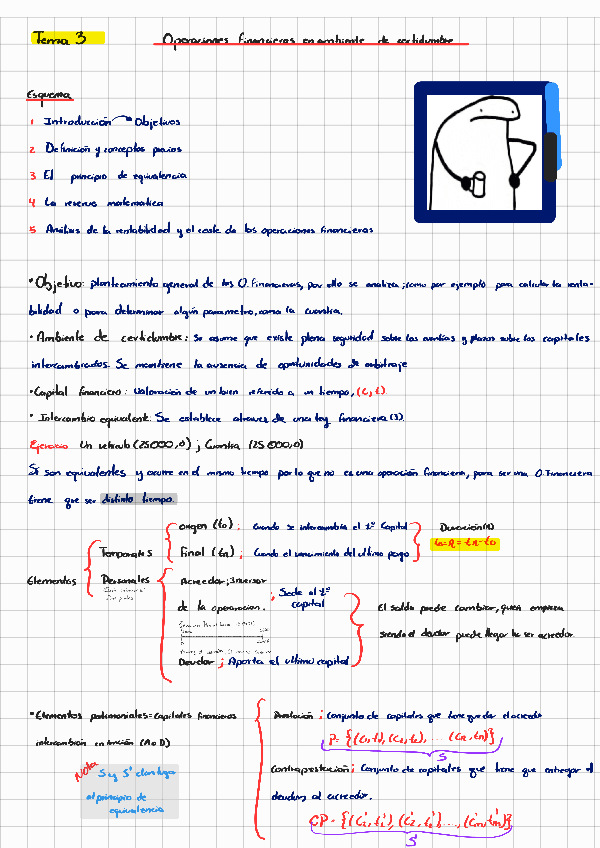 Tema 3 Operaciones financieras en ambiente de certidumbre
Esquema
1 Introducción Objetivos
2 Definición y conceptos previos
3 El principio de equivalencia
4 La reserva matematica
5 Analisis de la rentabilidad y el coste de las operaciones financieras
• Objetivo: planteamiento general de las O. Financieras, por ello se analiza ; como por ejemplo para calcular la renta-
bilidad o para determinar algún parametro, como la cuantía.
• Ambiente de certidumbre: Se asume que existe plena seguridad sobre las cuantías y plazos sobre los capitales
intercambiados. Se mantiene la ausencia de oportunidades de arbitraje
• Capital financiero: Valoración de un bien referido a un tiempo, (C, t)
• Intercambio equivalent: Se establece atraves de una ley financiera (3)
Ejercicio Un vehículo (25000,0) ; Cuantía (25 000,0)
Si son equivalentes y ocurre en el mismo tiempo por lo que no es una operación financiera, para ser una O. Financiera
tiene que ser distinto tiempo.
Elementos
Temporales
origen (to) ; Cuando se intercambia el 1º Capital
Final (tn) ; Cuando el vencimiento del ultimo pago
Duración (n)
Personales
Acreedor ; Inversor
de la operacion. ; Sede el 1º
capital
Deudor ; Aporta el ultimo capital
El saldo puede cambiar, quien empieza
siendo el deudor puede llegar ha ser acreedor.
• Elementos patrimoniales = capitales financieros
intercambian en función (A o D)
Prestación ; Conjunto de capitales que tiene que dar el acreedor
P = {(C1, t1), (C2, t2), ... (Cn, tn)}
S
Contraprestación ; Conjunto de capitales que tiene que entregar el
deudor, al acreedor.
CP = {(C'1, t'1), (C'2, t'2), ..., (C'm, t'm)}
S'
Nota
S y S' dan lugar
al principio de
equivalencia